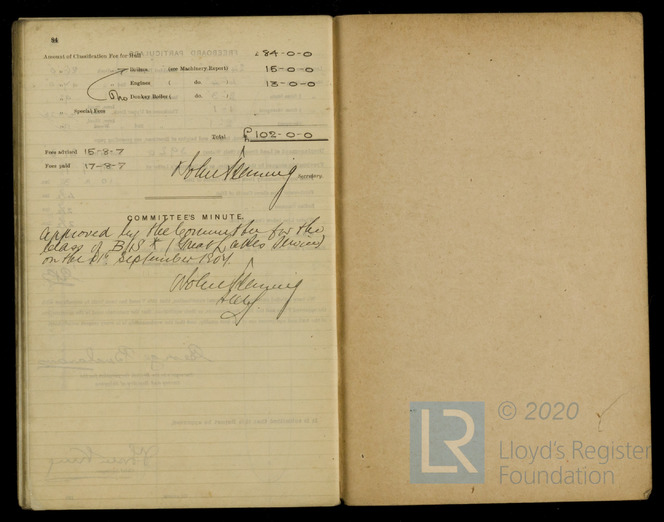 84
Amount of Classification Fee for Hull £84-0-0
" Boilers (see Machinery Report) 15-0-0
" Engines ( do. ) 13-0-0
No Donkey Boiler ( do. )
" Special Fees
Total £102-0-0
Fees advised 15-8-7
Fees paid 17-8-7
John Fleming
Secretary.
COMMITTEE'S MINUTE.
Approved by the Committee for the
Class of B.S.* (Great Lakes Service)
on the September 1907.
John Fleming
Secy
LR
© 2020
Lloyd's Register
Foundation